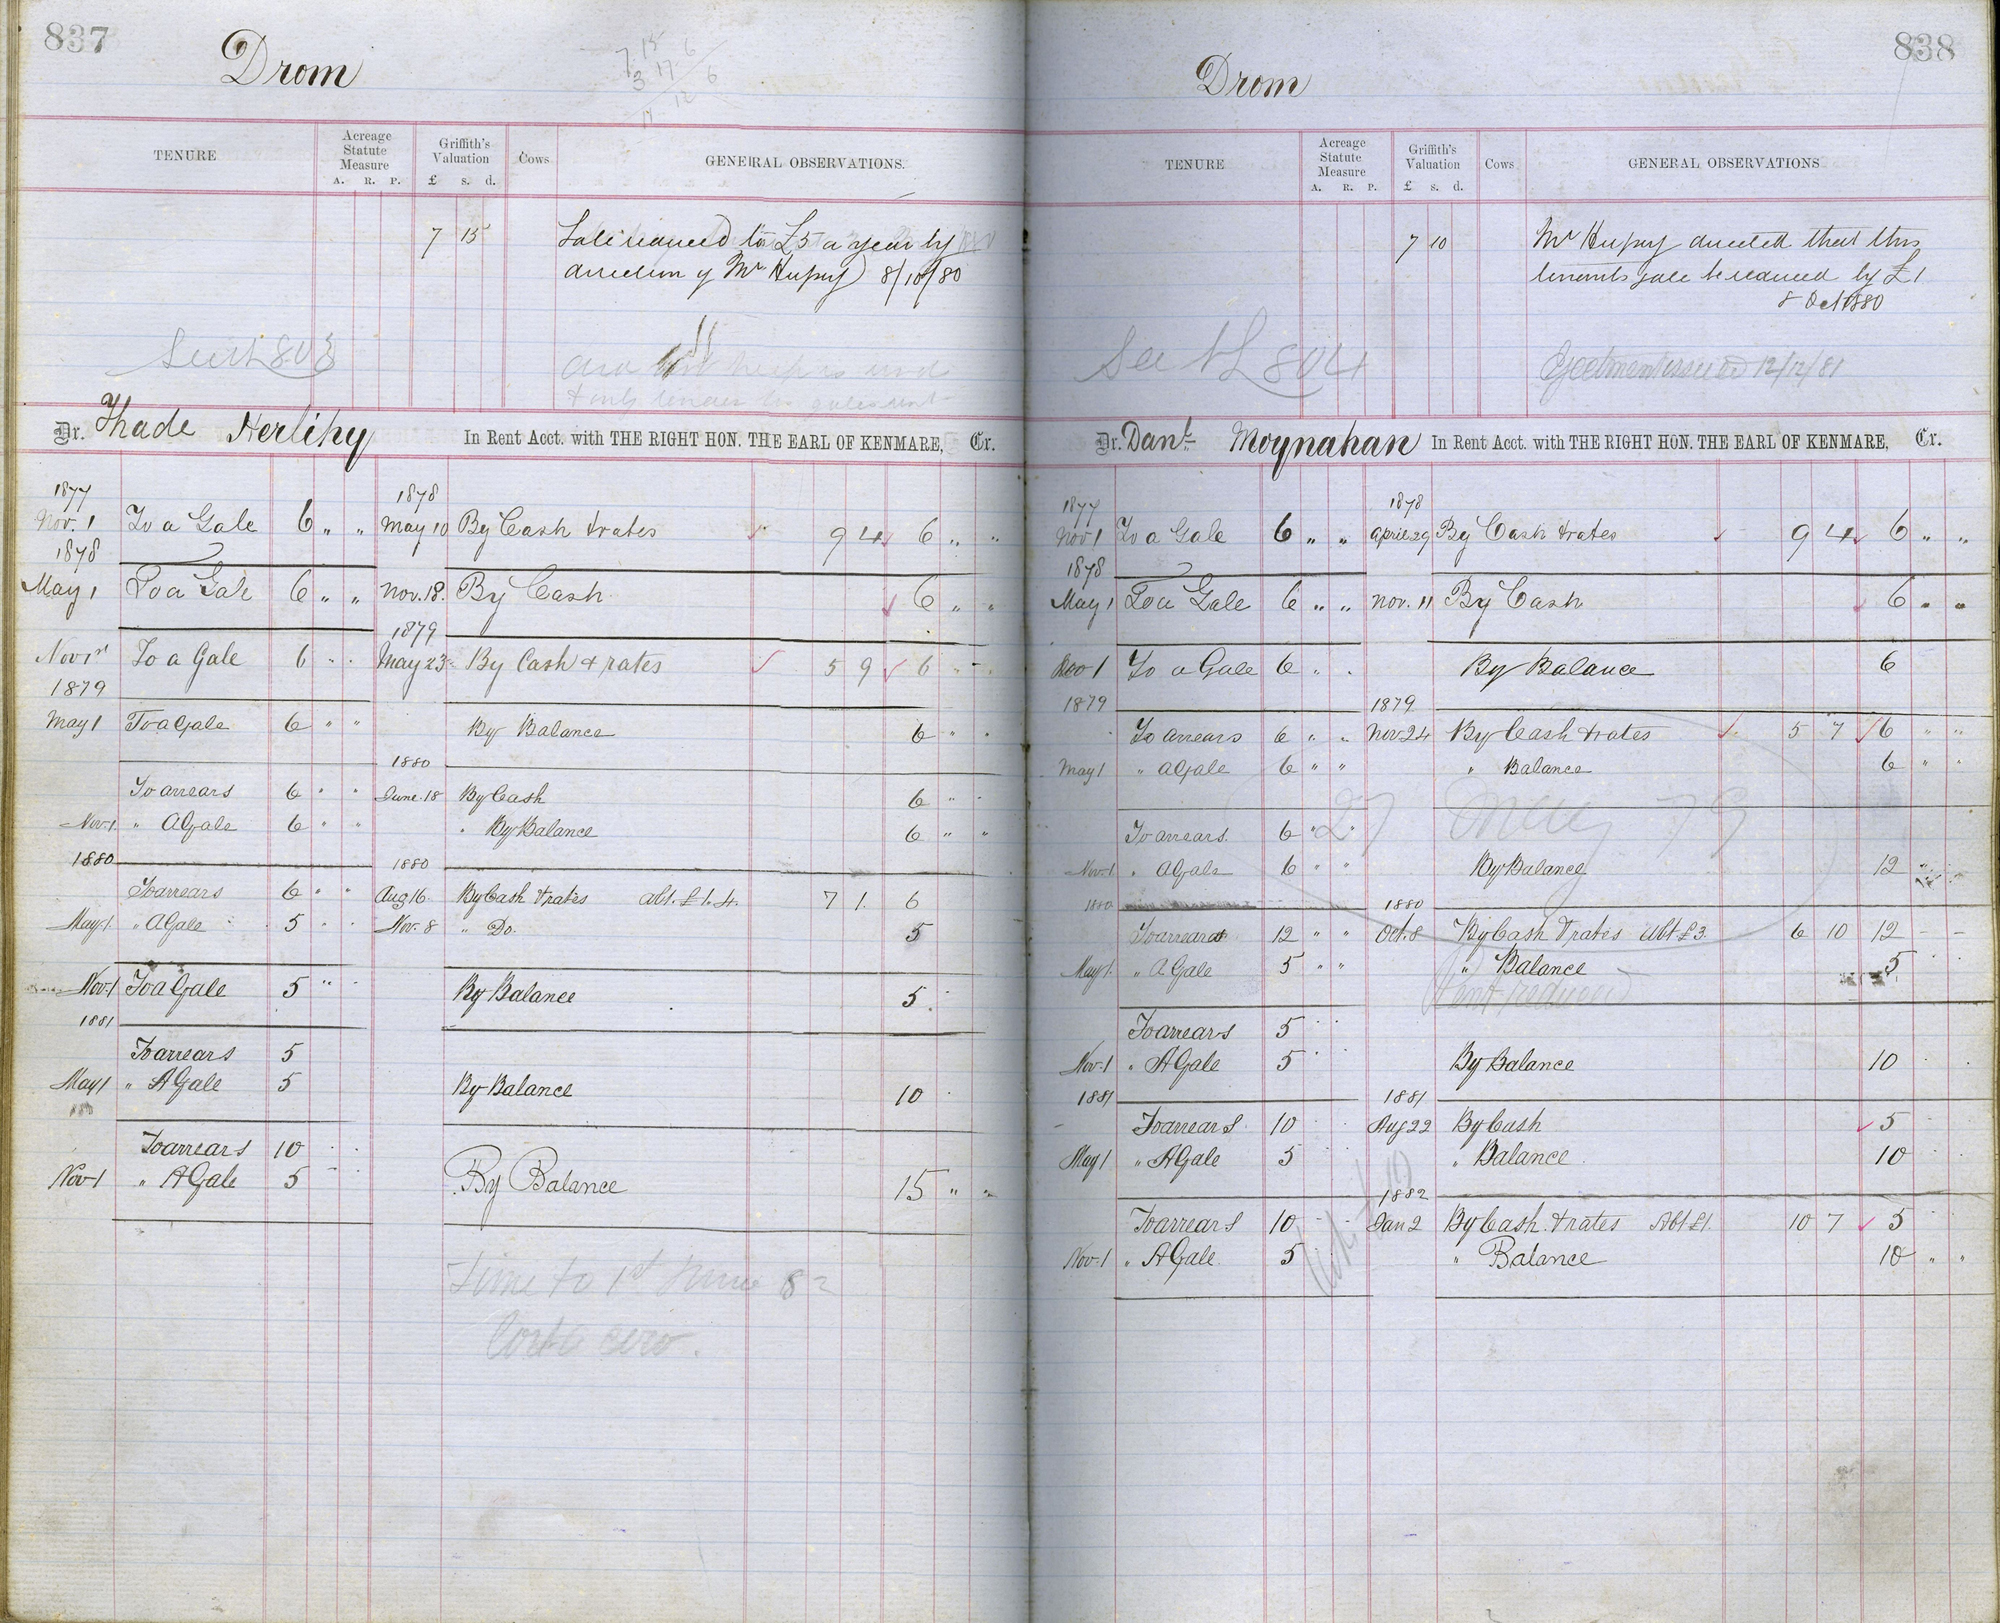 837
Drom
7 15 6
3 17 6
TENURE
Acreage Statute Measure
A. R. P.
Griffith's Valuation
£ s. d.
Cows
GENERAL OBSERVATIONS.
7 15
Gale reduced to £5 a year by
direction of Mr Hussey 8/10/80
Dr. Thade Herlihy In Rent Acct. with THE RIGHT HON. THE EARL OF KENMARE, Cr.
1877 1878
Nov. 1 To a Gale 6 " " May 10 By Cash & rates 9 4 6 " "
1878
May 1 To a Gale 6 " " Nov. 18. By Cash 6 " "
1879
Nov 1st To a Gale 6 " " May 23 By Cash & rates 5 9 6 " "
1879
May 1 To a Gale 6 " " By Balance 6 " "
1880
To arrears 6 " " June 18 By Cash 6 " "
Nov 1 " A Gale 6 " " " By Balance 6 " "
1880 1880
To arrears 6 " " Aug 16 By Cash & rates abt. £1.4. 7 1. 6
May 1 " A Gale 5 " " Nov. 8 " Do. 5
Nov 1 To a Gale 5 " " By Balance 5
1881
To arrears 5
May 1 " A Gale 5 By Balance 10
To arrears 10
Nov 1 " A Gale 5 By Balance 15 " "
Time to 1st June 82
838
Drom
TENURE
Acreage Statute Measure
A. R. P.
Griffith's Valuation
£ s. d.
Cows
GENERAL OBSERVATIONS
7 10
Mr Hussey directed that this
tenants gale be reduced by £1
8 Oct 1880
See N L 804
Ejectment issued 12/12/81
Dr. Danl. Moynahan In Rent Acct. with THE RIGHT HON. THE EARL OF KENMARE, Cr.
1877 1878
Nov 1 To a Gale 6 " " April 29 By Cash & rates 9 4 6 " "
1878
May 1 To a Gale 6 " " Nov. 11 By Cash 6 " "
Nov 1 To a Gale 6 " . By Balance 6
1879 1879
To arrears 6 " " Nov 24 By Cash & rates 5 7 6 " "
May 1 " A Gale 6 " " " Balance 6 " "
27 May 79
To arrears. 6 " "
Nov 1 " A Gale 6 " " By Balance 12 " "
1880 1880
To arrears 12 " " Oct. 8 By Cash & rates Abt £3. 6 10 12 - -
May 1 " A Gale 5 " " " Balance 5
Rent reduced
To arrears 5
Nov 1 " A Gale 5 By Balance 10
1881 1881
To arrears 10 Aug 22 By Cash 5
May 1 " A Gale 5 " Balance 10
1882
To arrears 10 Jan 2 By Cash & rates Abt £1. 10 7 5
Nov 1 " A Gale 5 " Balance 10 " "